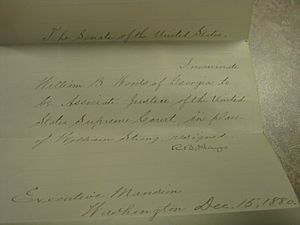 The Senate of the United States.
I nominate
William B. Woods of Georgia to
be Associate Justice of the United
States Supreme Court, in place
of William Strong resigned
R.B. Hayes
Executive Mansion
Washington Dec. 15, 1880.